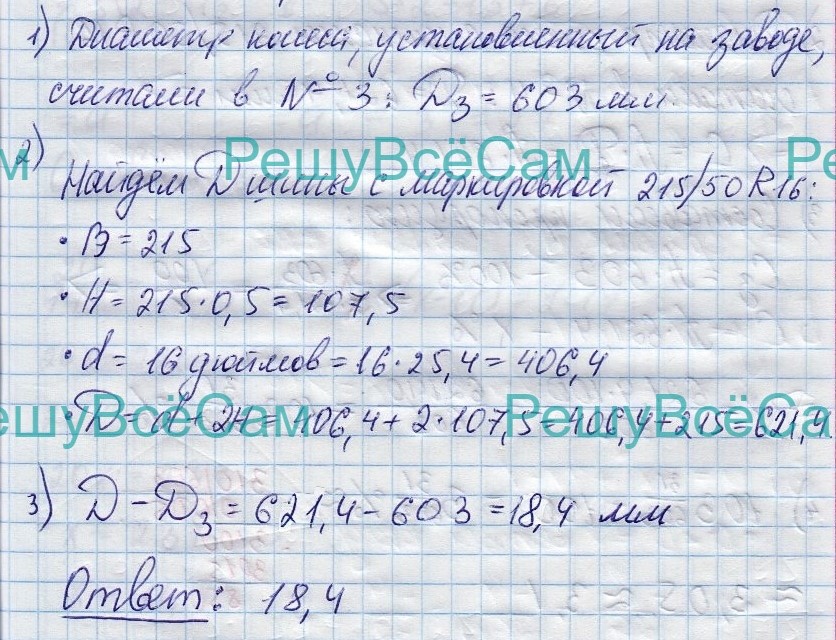 1) Диаметр колеса, установленный на заводе,
считали в № 3: D₃ = 603 мм.
2) Найдём D шины с маркировкой 215/50 R16:
РешуВсёСам
• B = 215
• H = 215·0,5 = 107,5
• d = 16 дюймов = 16·25,4 = 406,4
• D = d + 2H = 406,4 + 2·107,5 = 406,4 + 215 = 621,4
РешуВсёСам РешуВсёСам
3) D – D₃ = 621,4 – 603 = 18,4 мм
Ответ: 18,4